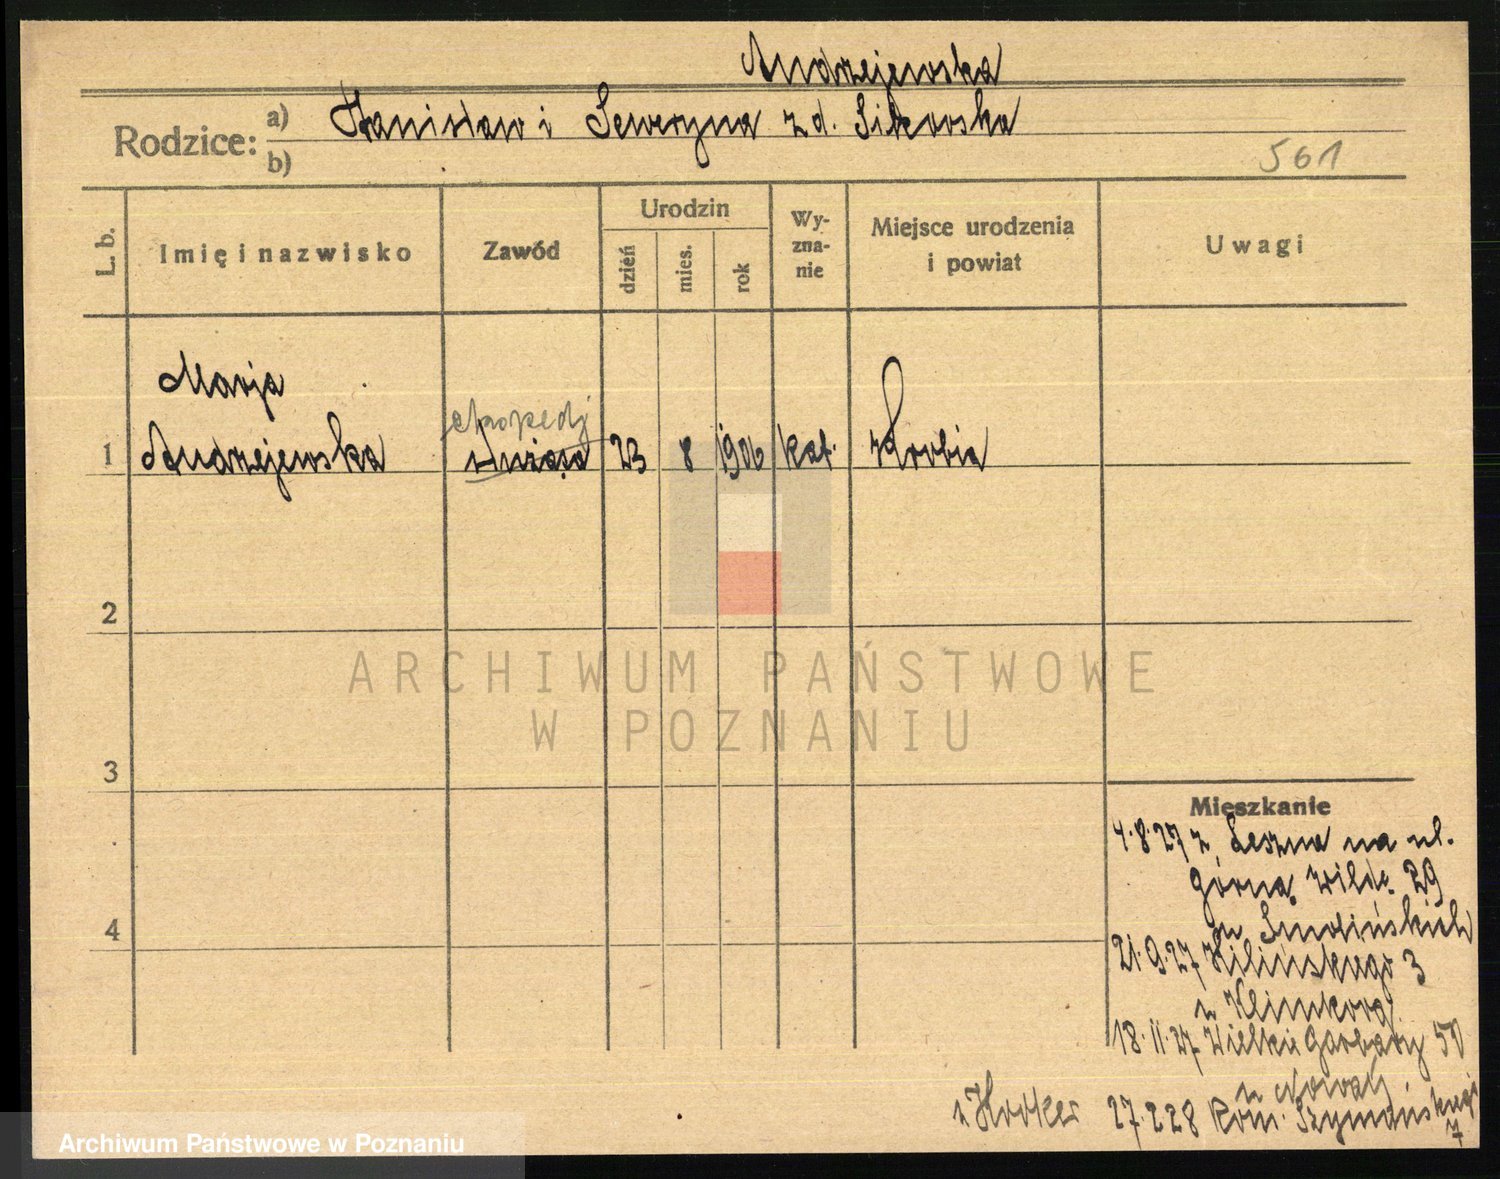 Andrzejewska
Rodzice: a) Stanisław i Seweryna z d. Sikorska
b)
561
L. b. Imię i nazwisko Zawód Urodzin dzień mies. rok Wy-zna-nie Miejsce urodzenia i powiat Uwagi
Marja
ekspedj
1 Andrzejewska służąca 23 8 1906 kat. Krobia
2
ARCHIWUM PAŃSTWOWE
W POZNANIU
3
Mieszkanie
4.8.27 z Leszna na ul.
Górna Wilda 29
4
u Smolińskich
21.9.27 Kilińskiego 3
u
18.11.27 Wielkie Garbary 50
u Nowak
27.2.28 Rom. Szymańskiego
7
Archiwum Państwowe w Poznaniu